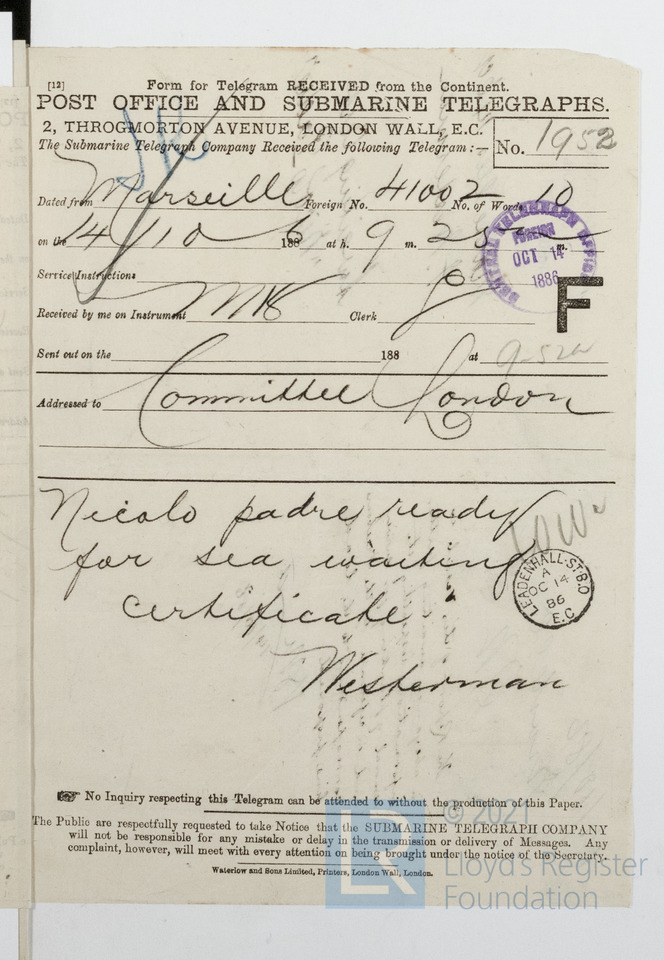 [12] Form for Telegram RECEIVED from the Continent.
POST OFFICE AND SUBMARINE TELEGRAPHS.
2, THROGMORTON AVENUE, LONDON WALL, E.C.
The Submarine Telegraph Company Received the following Telegram:—
No. 1952
Dated from Marseille Foreign No. 41002 No. of Words 10
on the 14/10 1886 at h. 9 m. 25 m.
CENTRAL TELEGRAPH OFFICE
FOREIGN
OCT 14
1886
F
Service Instructions
Received by me on Instrument Clerk
Sent out on the 188 at 9-52
Addressed to Committee London
Nicolo padre ready
for sea waiting
certificate
Westerman
LEADENHALL-ST-B.O
A
OC 14
86
E.C
No Inquiry respecting this Telegram can be attended to without the production of this Paper.
The Public are respectfully requested to take Notice that the SUBMARINE TELEGRAPH COMPANY
will not be responsible for any mistake or delay in the transmission or delivery of Messages. Any
complaint, however, will meet with every attention on being brought under the notice of the Secretary.
Waterlow and Sons Limited, Printers, London Wall, London.
LR
© 2021
Lloyd's Register
Foundation